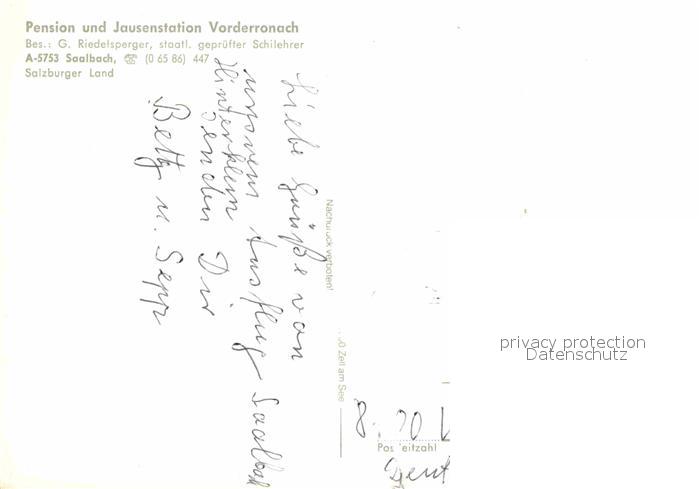 Pension und Jausenstation Vorderronach
Bes.: G. Riedelsperger, staatl. geprüfter Schilehrer
A-5753 Saalbach, ☎ (0 65 86) 447
Salzburger Land
Liebe Grüße von
unserem Ausflug Saalbach
Hinterklem
senden Dir
Betty u. Sepp
Nachdruck verboten!
Zell am See
privacy protection
Datenschutz
Postleitzahl